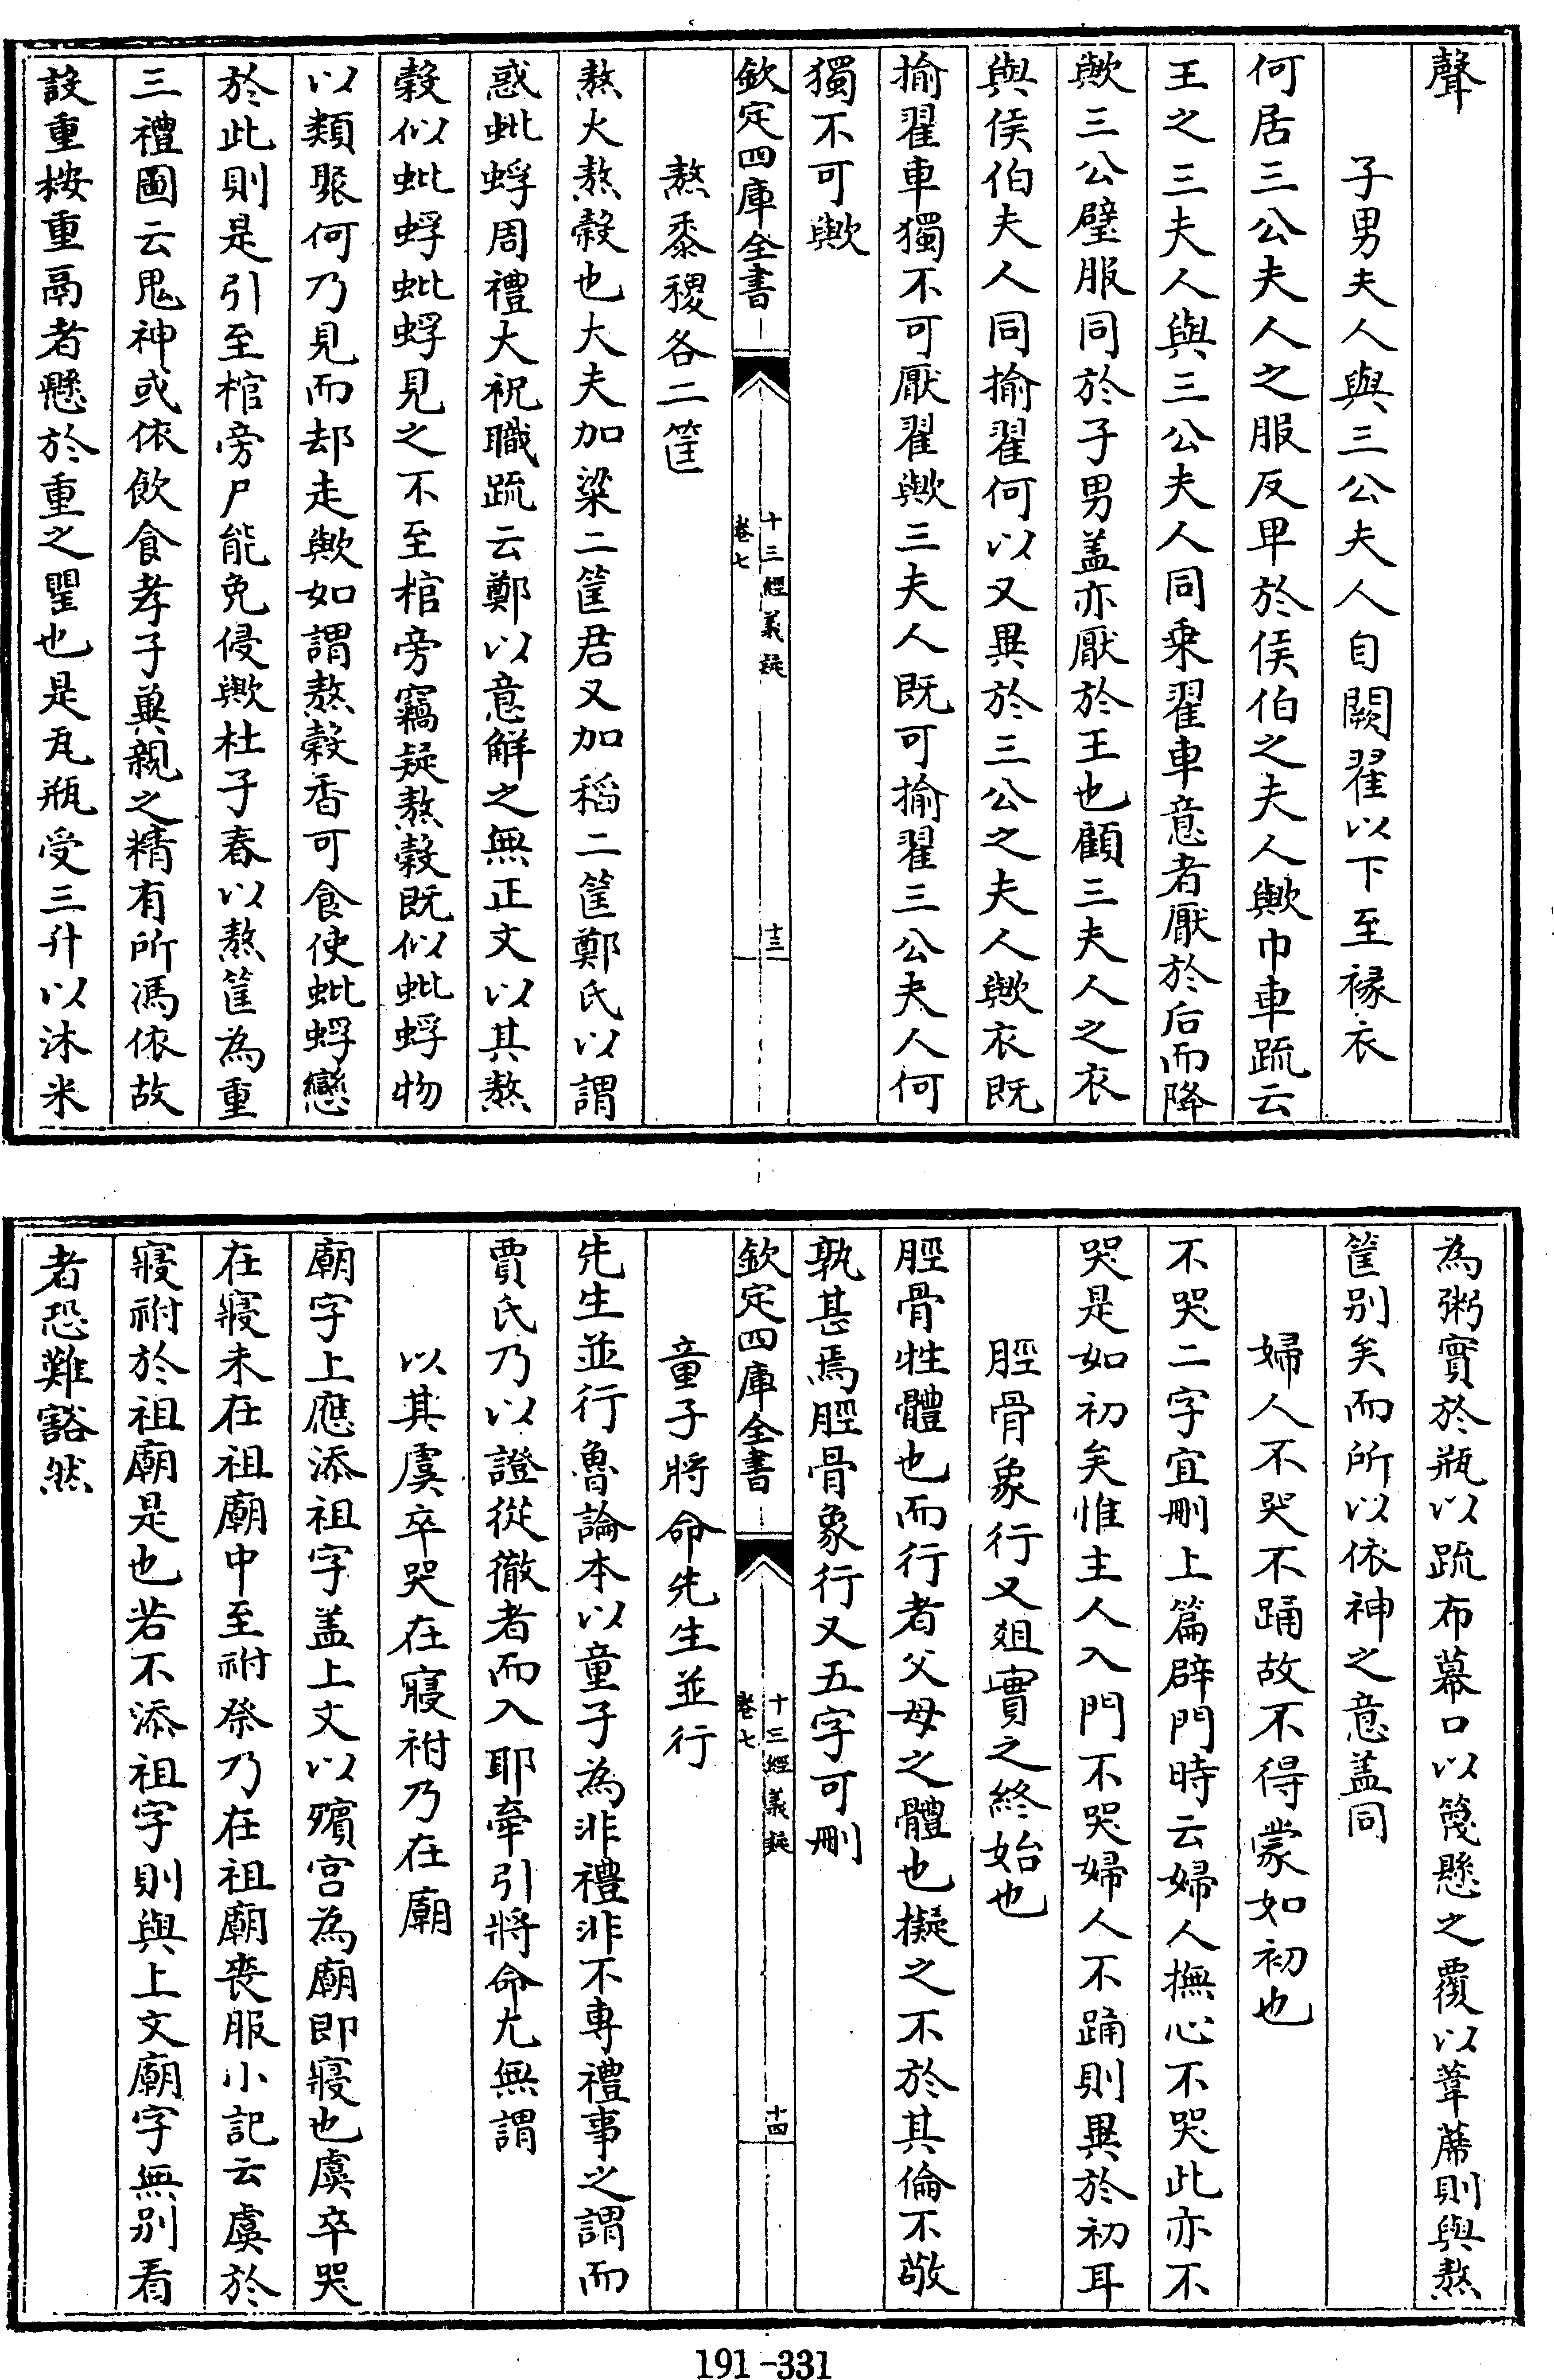 聲
子男夫人與三公夫人自闕翟以下至褖衣
何居三公夫人之服反卑於侯伯之夫人歟巾車疏云
王之三夫人與三公夫人同乘翟車意者厭於后而降
歟三公璧服同於子男盖亦厭於王也顧三夫人之衣
與侯伯夫人同揄翟何以又異於三公之夫人歟衣既
揄翟車獨不可厭翟歟三夫人既可揄翟三公夫人何
獨不可歟
欽定四庫全書
十三經義疑
卷七
十三
熬黍稷各二筐
熬火熬榖也大夫加粱二筐君又加稻二筐鄭氏以謂
惑蚍蜉周禮大祝職疏云鄭以意解之無正文以其熬
榖似蚍蜉蚍蜉見之不至棺旁竊疑熬榖既似蚍蜉物
以類聚何乃見而却走歟如謂熬榖香可食使蚍蜉戀
於此則是引至棺旁尸能免侵歟杜子春以熬筐為重
三禮圖云鬼神或依飲食孝子冀親之精有所馮依故
設重桉重鬲者懸於重之罌也是瓦瓶受三升以沐米
為粥實於瓶以疏布幕口以篾懸之覆以葦蓆則與熬
筐别矣而所以依神之意盖同
婦人不哭不踊故不得蒙如初也
不哭二字宜刪上篇辟門時云婦人撫心不哭此亦不
哭是如初矣惟主人入門不哭婦人不踊則異於初耳
脛骨象行又俎實之終始也
脛骨牲體也而行者父母之體也擬之不於其倫不敬
孰甚焉脛骨象行又五字可刪
欽定四庫全書
十三經義疑
卷七
十四
童子將命先生並行
先生並行魯論本以童子為非禮非不專禮事之謂而
賈氏乃以證從徹者而入耶牽引將命尤無謂
以其虞卒哭在寢祔乃在廟
廟字上應添祖字盖上文以殯宫為廟即寢也虞卒哭
在寢未在祖廟中至祔祭乃在祖廟喪服小記云虞於
寢祔於祖廟是也若不添祖字則與上文廟字無别看
者恐難豁然
191-331